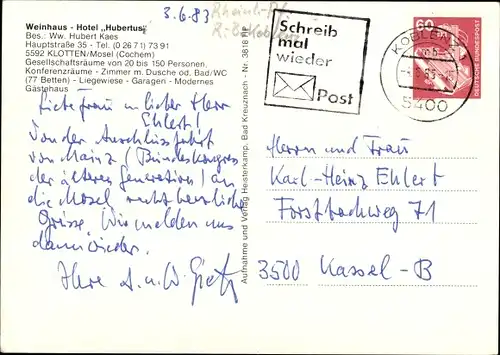 3.6.83 Rheinl.-Pf.
R.B. Koblenz
Weinhaus - Hotel „Hubertus"
Bes.: Ww. Hubert Kaes
Hauptstraße 35 - Tel. (0 26 71) 73 91
5592 KLOTTEN/Mosel (Cochem)
Gesellschaftsräume von 20 bis 150 Personen
Konferenzräume - Zimmer m. Dusche od. Bad/WC
(77 Betten) - Liegewiese - Garagen - Modernes
Gästehaus
Liebe Frau u. lieber Herr
Ehlert!
Von der Anschlussfahrt
von Mainz (Bundeskongress
der älteren Generation) an
die Mosel recht herzliche
Grüsse. Wir melden uns
dann wieder.
Ihre A. u. W.
Aufnahme und Verlag Heisterkamp, Bad Kreuznach - Nr. 3818 RE
Schreib
mal
wieder
Post
KOBLENZ
5400
60
DEUTSCHE BUNDESPOST
Herrn und Frau
Karl-Heinz Ehlert
Forstbachweg 71
3500 Kassel-B